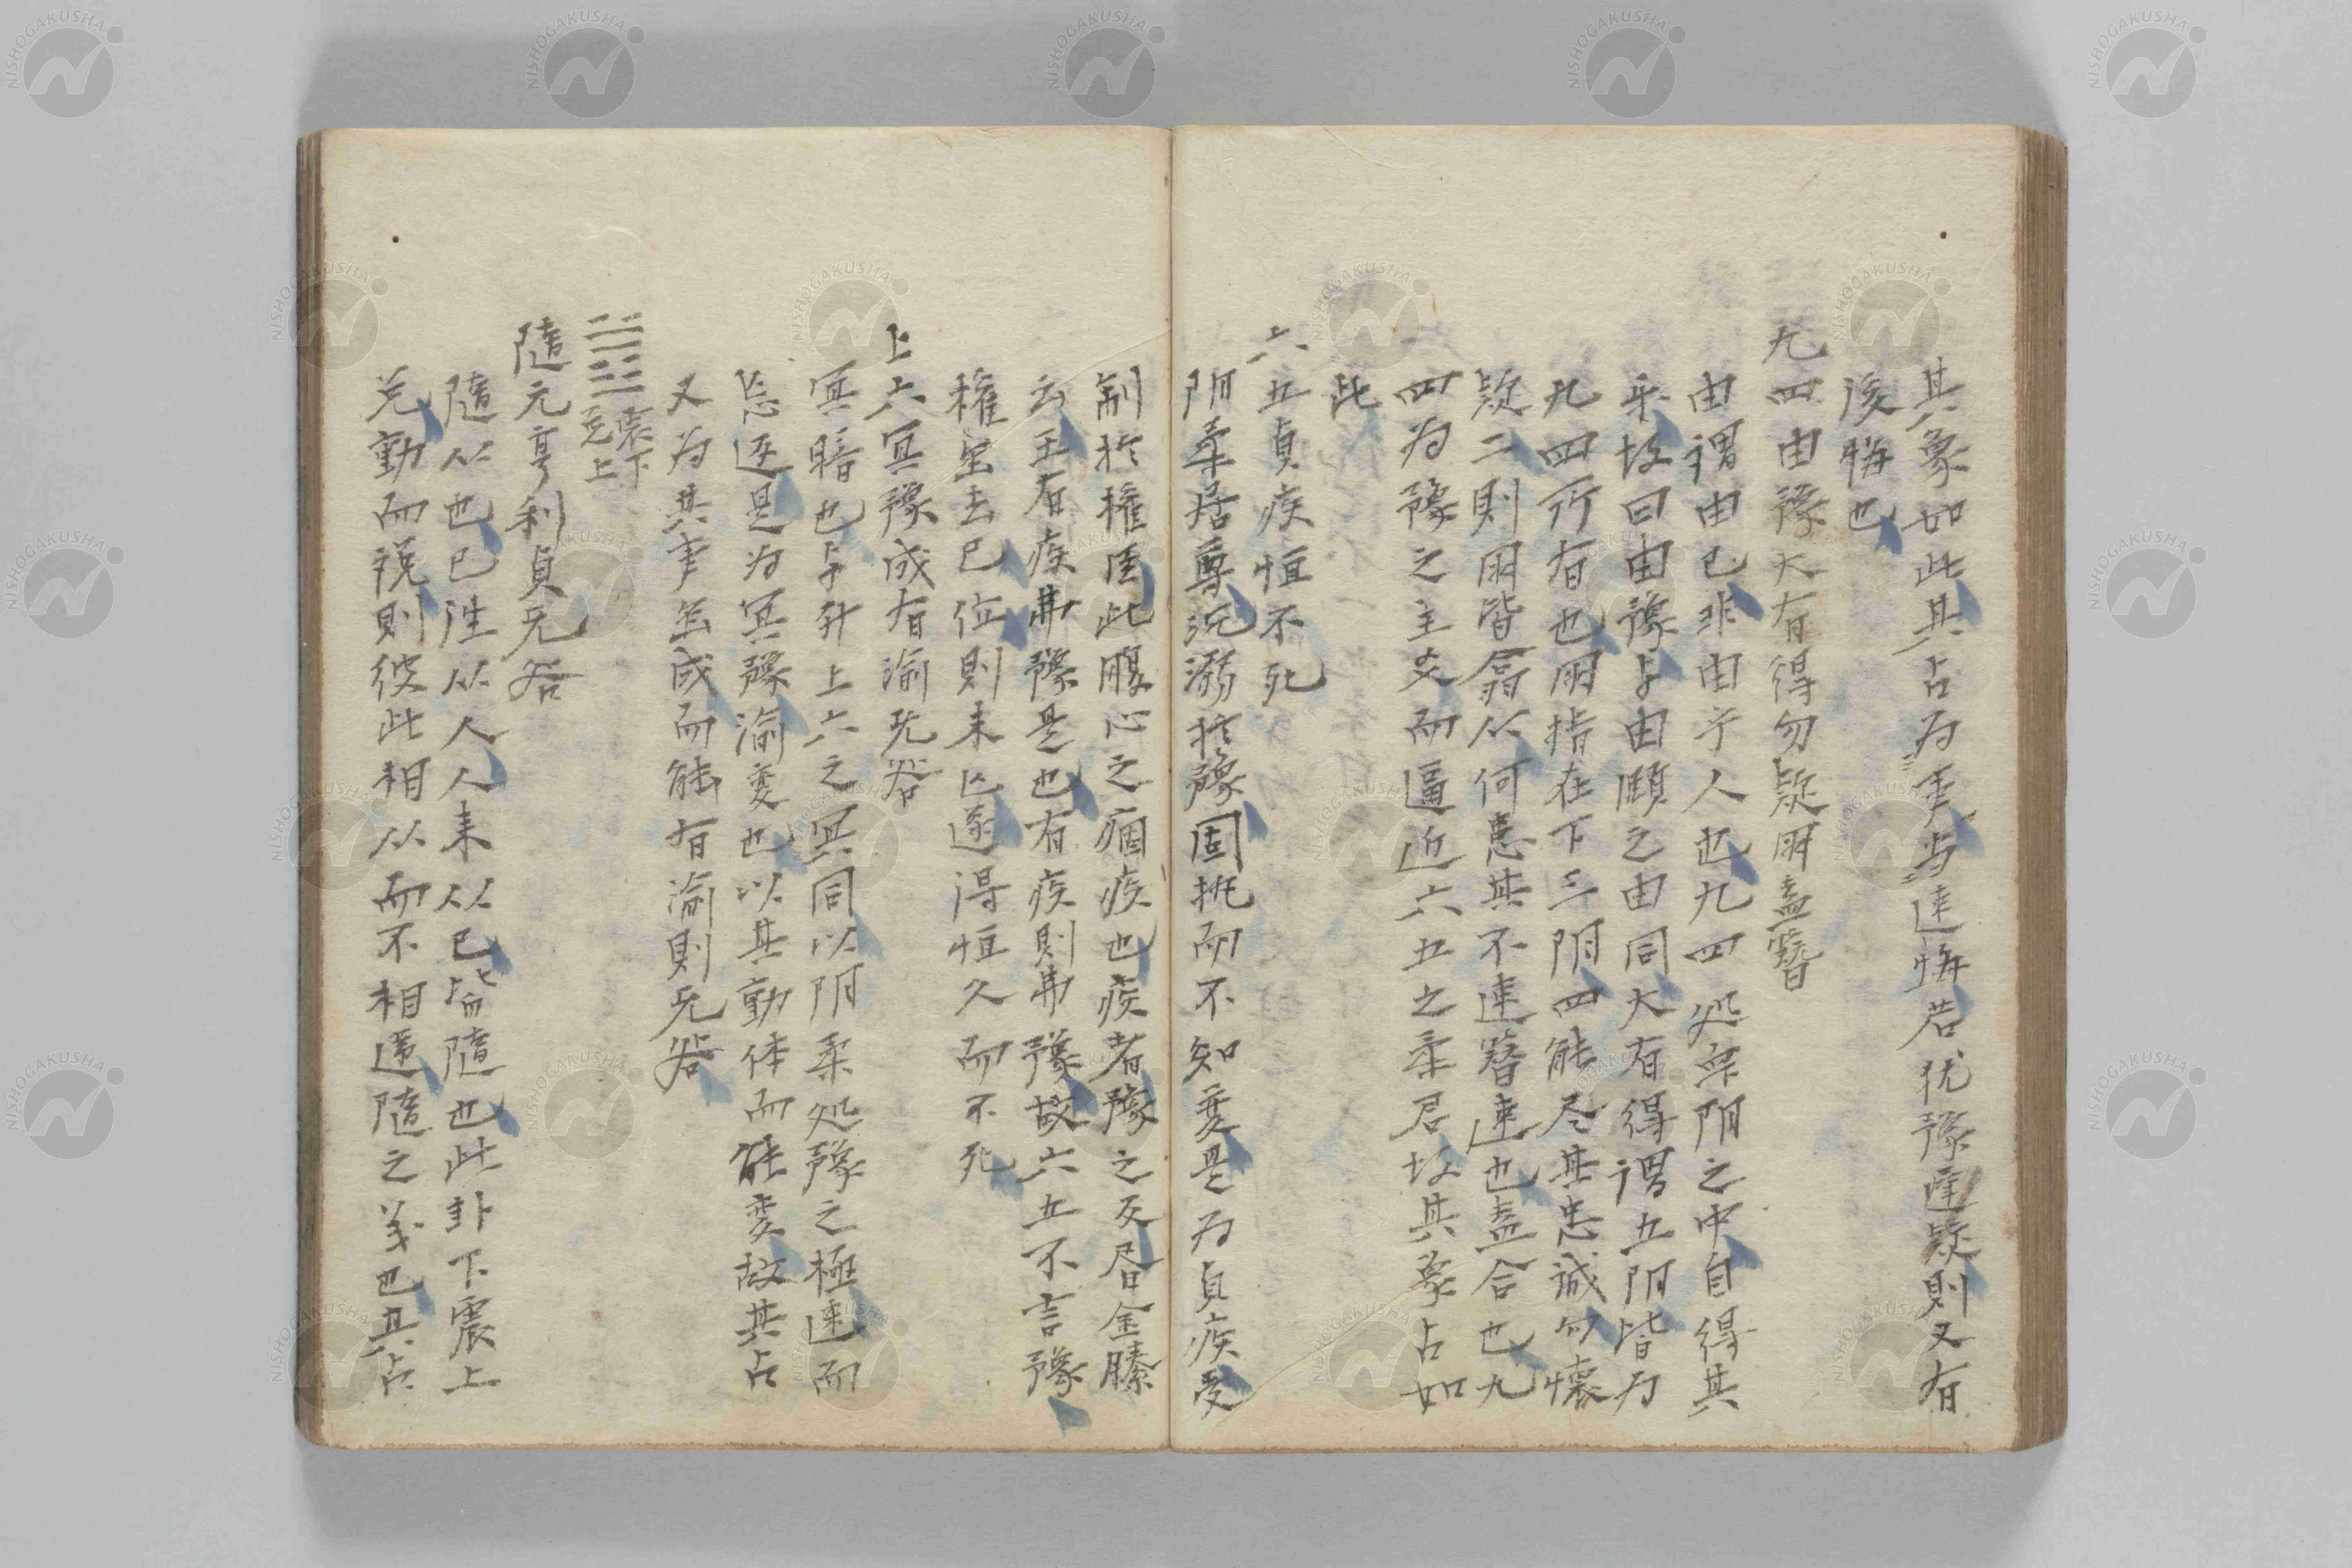 其象如此其占为事当速悔若犹豫遅疑則又有
後悔也
九四由豫大有得勿疑朋盍簪
由謂由已非由于人也九四処群阴之中自得其
乐故曰由豫与由頤之由同大有得謂五阴皆为
九四所有也朋指在下三阴四能尽其忠誠勿懐
疑二則朋皆翕从何患其不速簪速也盍合也九
四为豫之主爻而逼近六五之柔君故其象占如
此
六五貞疾恒不死
阴柔居尊沉溺於豫固执而不知変是为貞疾受
制於權臣此腹心之痼疾也疾者豫之反昏金縢
云王有疾弗豫是也有疾則弗豫故六五不言豫
權去已位則未亡遂得恒久而不死
上六冥豫成有渝无咎
冥暗也与升上六之冥同以阴柔処豫之極速而
忘返是为冥豫渝変也以其動体而能変故其占
又为其事虽成而能有渝則无咎
震下
兌上
隨元亨利貞无咎
隨从也已往从人人来从已皆隨也此卦下震上
兑動而説則彼此相从而不相違隨之义也其占
NISHOGAKUSHA